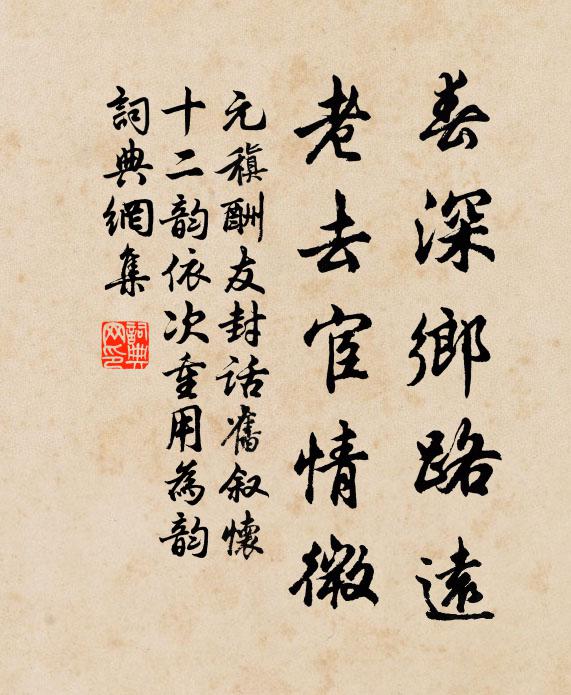 春深鄉路遠
老去宦情微
元稹酬友封話舊叙懷
十二韵依次重用為韵
詞典網集
詞典網印